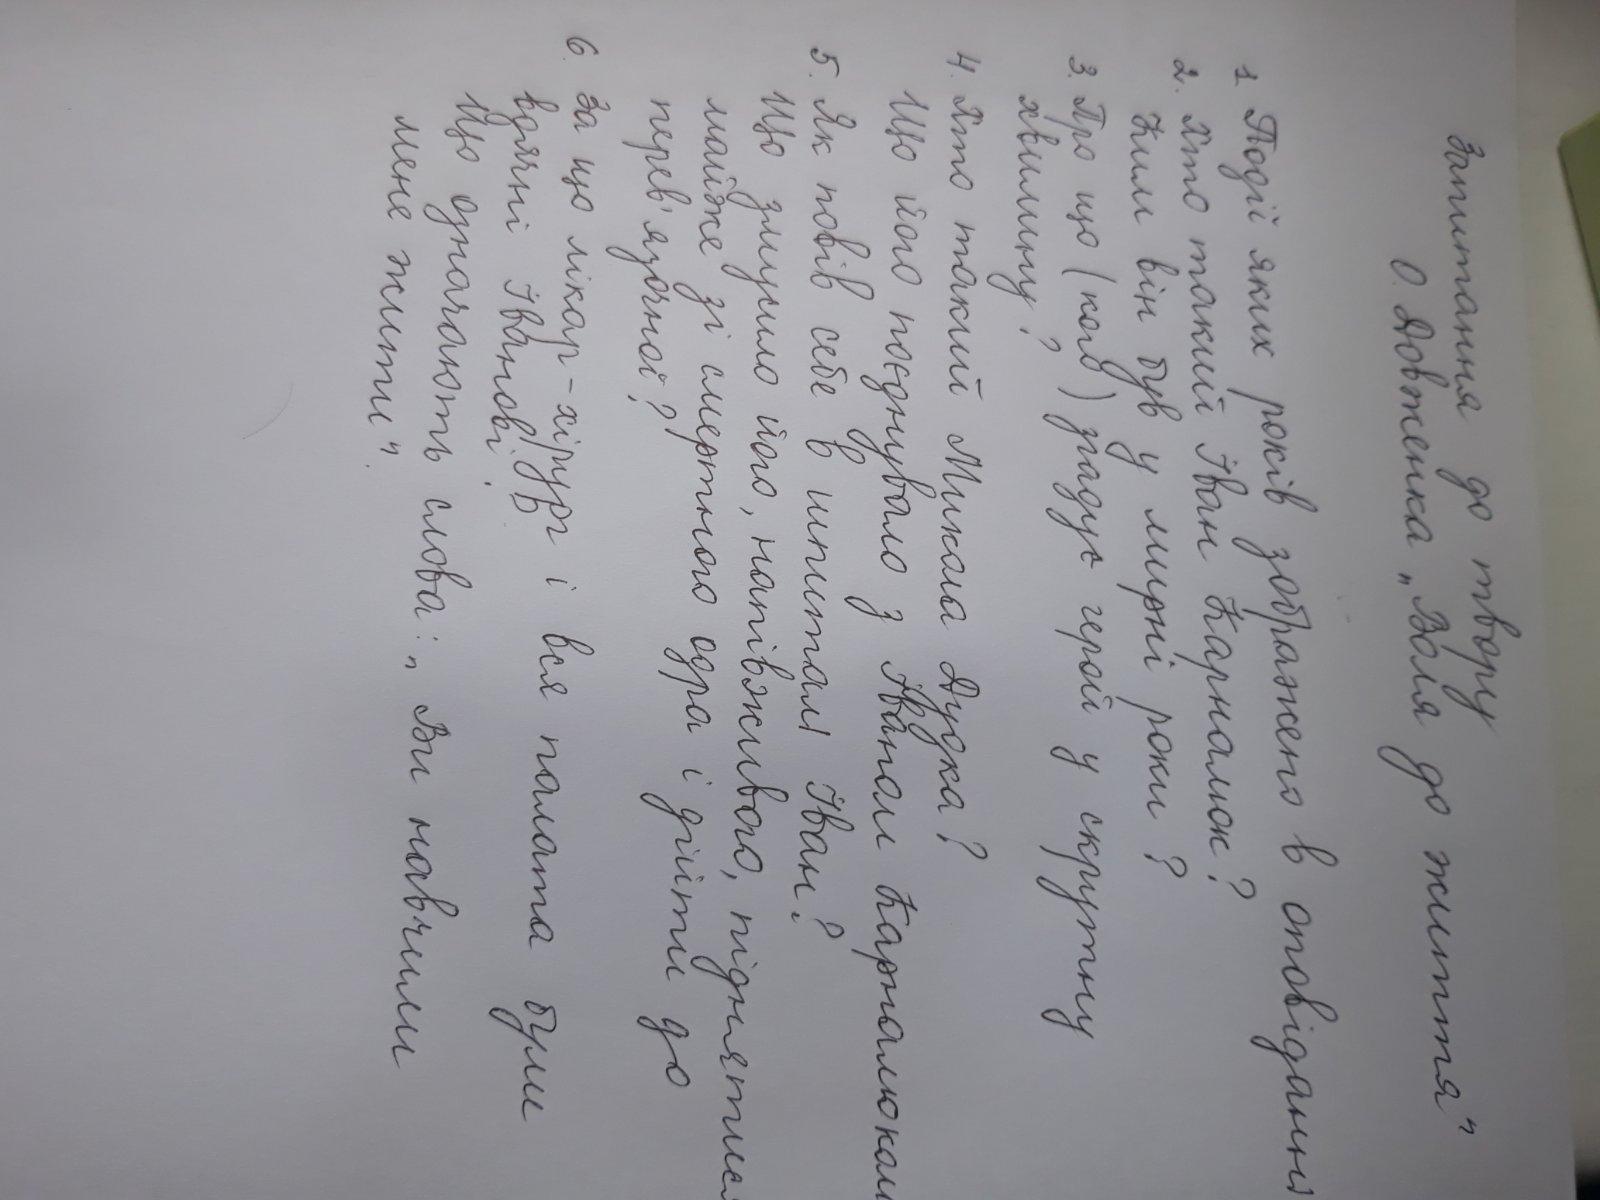 Запитання до твору
О. Довженка „Воля до життя"
1. Події яких років зображено в оповіданні
2. Хто такий Іван Карналюк?
Ким він був у мирні роки?
3. Про що (кого) згадує герой у скрутну
хвилину?
4. Хто такий Микола Дудка?
Що його поєднувало з Іваном Карналюком
5. Як повів себе в шпиталі Іван?
Що змусило його, напівживого, піднятися
майже зі смертного одра і дійти до
перев'язочної?
6. За що лікар-хірург і вся палата були
вдячні Іванові?
Що означають слова: „Ви навчили
мене жити".